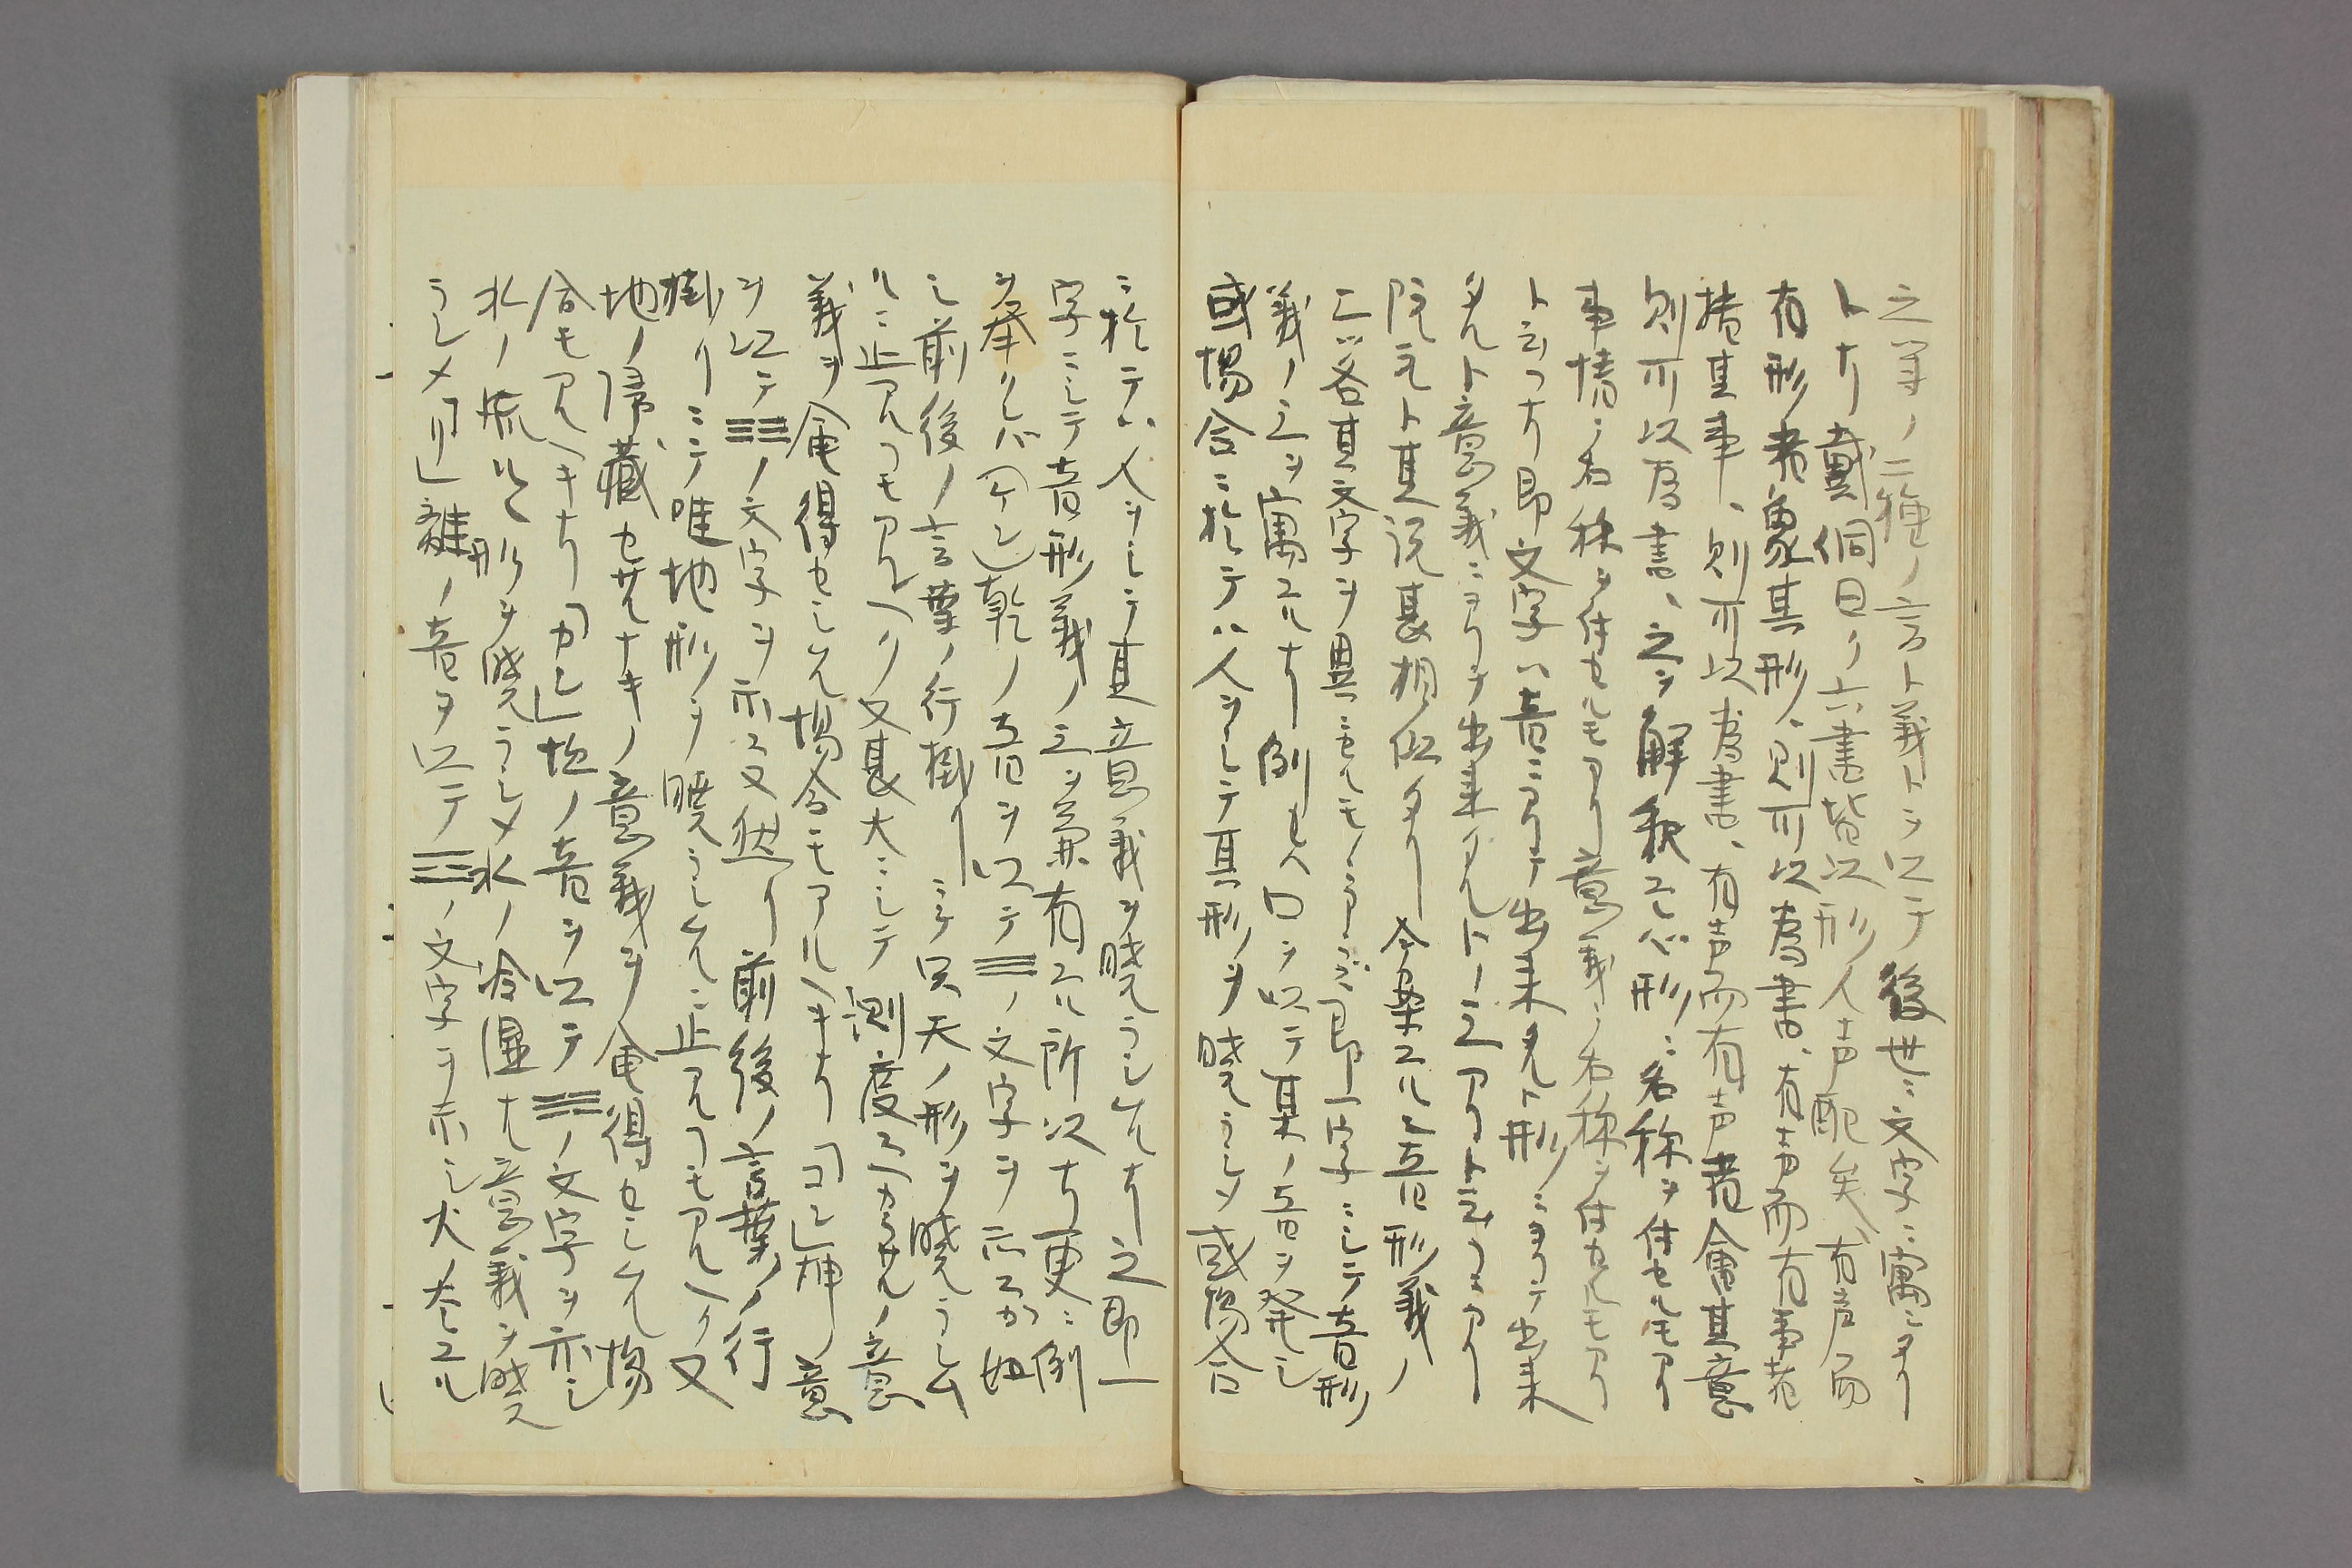 之等ノ二種ノ言ト義トヲ以テ後世ニ文字ニ寓シタリ
トナリ戴侗曰ク六書皆以形人声配矣、有声而
有形者象其形、則可以為書、有声而有事者
指其事、則可以為書、有声而有声者會其意
則可以為書、之ヲ解釈スレバ形ニ名称ヲ付セルモアリ
事情ニ名称ヲ付セルモアリ意義ニ名称ヲ付セルモアリ
ト云フナリ即文字ハ音ニヨリテ出来タルト形ニヨリテ出来
タルト意義ニヨリテ出来タルトノ之アリト云フニアリ
阮元ト其説甚相似タリ 今案スルニ音形義ノ
三ハ各其文字ヲ異ニセルモノニアラズ即一字ニシテ音形
義ノ三ヲ寓スルナリ例セハ口ヲ以テ某ノ音ヲ発シ
或場合ニ於テハ人ヲシテ其形ヲ暁ラシメ或場合
ニ於テハ人ヲシテ其意義ヲ暁ラシムルナリ之即一
字ニシテ音形義ノ三ヲ兼有スル所以ナリ更ニ例
ヲ挙クレバ「ケン」乾ノ音ヲ以テ☰ノ文字ヲ示スガ如
シ前後ノ言葉ノ行掛リニテ只天ノ形ヲ暁ラシム
ルニ止アルコモアルヘク又甚大ニシテ測度スヘカラサルノ意
義ヲ會得セシムル場合モアルヘキナリ「コン」坤ノ音
ヲ以テ☷ノ文字ヲ示ス又然リ前後ノ言葉ノ行
掛リニテ唯地形ヲ暁ラシムルニ止アルコモアルヘク又
地ノ帰藏セサルナキノ意義ヲ會得セシムル場
合モアルヘキナリ「カン」坎ノ音ヲ以テ☵ノ文字ヲ示シ
水ノ流ルヽ形ヲ暁ラシメ水ノ冷湿ナル意義ヲ暁ス
ラシメ「リ」離ノ音ヲ以テ☲ノ文字ヲ示シ火ノ